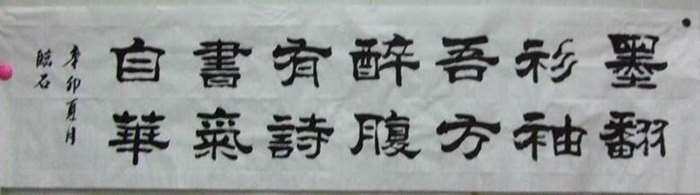 墨翻
衫袖
吾方
醉腹
有詩
書氣
自華
辛卯夏月
臨石